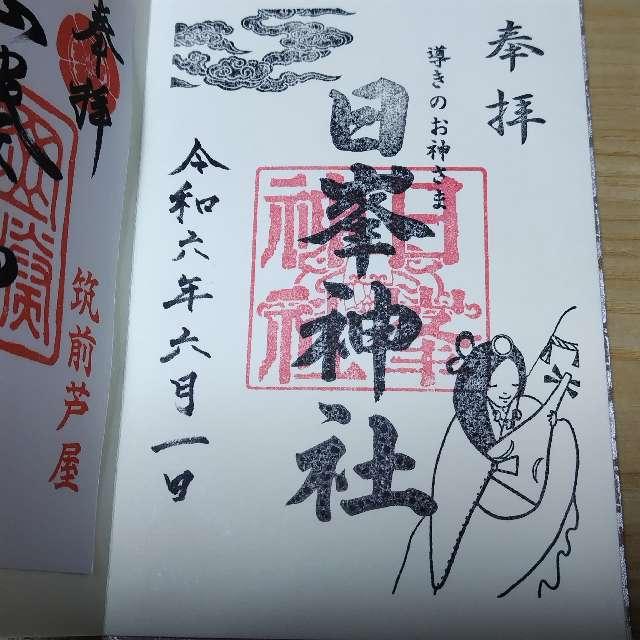 奉拝
導きのお神さま
日峯神社
日峯
神社
令和六年六月一日
奉拝
筑前芦屋